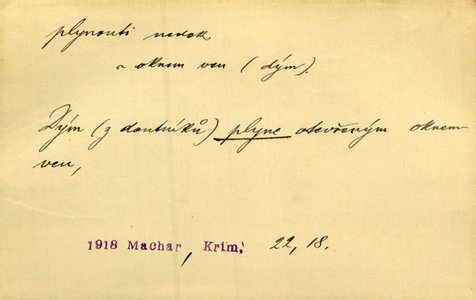 plynouti nedok
~ oknem ven (dým).
Dým (z doutníků) plyne otevřeným oknem
ven,
1918 Machar, Krim. 22, 18.